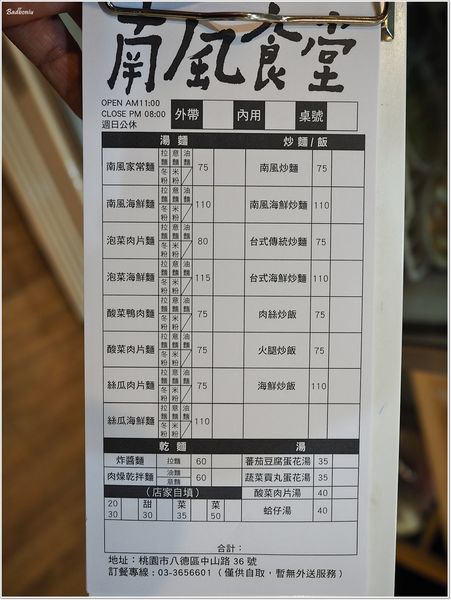 Badboniu
南風食堂
OPEN AM11:00
CLOSE PM 08:00
週日公休
外帶 內用 桌號
湯麵 炒麵/飯
南風家常麵 拉麵 意麵 油麵 冬粉 米粉 75 南風炒麵 75
南風海鮮麵 拉麵 意麵 油麵 冬粉 米粉 110 南風海鮮炒麵 110
泡菜肉片麵 拉麵 意麵 油麵 冬粉 米粉 80 台式傳統炒麵 75
泡菜海鮮麵 拉麵 意麵 油麵 冬粉 米粉 115 台式海鮮炒麵 110
酸菜鴨肉麵 拉麵 意麵 油麵 冬粉 米粉 75 肉絲炒飯 75
酸菜肉片麵 拉麵 意麵 油麵 冬粉 米粉 75 火腿炒飯 75
絲瓜肉片麵 拉麵 意麵 油麵 冬粉 米粉 75 海鮮炒飯 110
絲瓜海鮮麵 拉麵 意麵 油麵 冬粉 米粉 110
乾麵 湯
炸醬麵 拉麵 60 蕃茄豆腐蛋花湯 35
肉燥乾拌麵 油麵 意麵 60 蔬菜貢丸蛋花湯 35
(店家自填) 酸菜肉片湯 40
20 30 甜 30 菜 35 菜 50 蛤仔湯 40
合計：
地址：桃園市八德區中山路 36 號
訂餐專線：03-3656601（僅供自取，暫無外送服務）